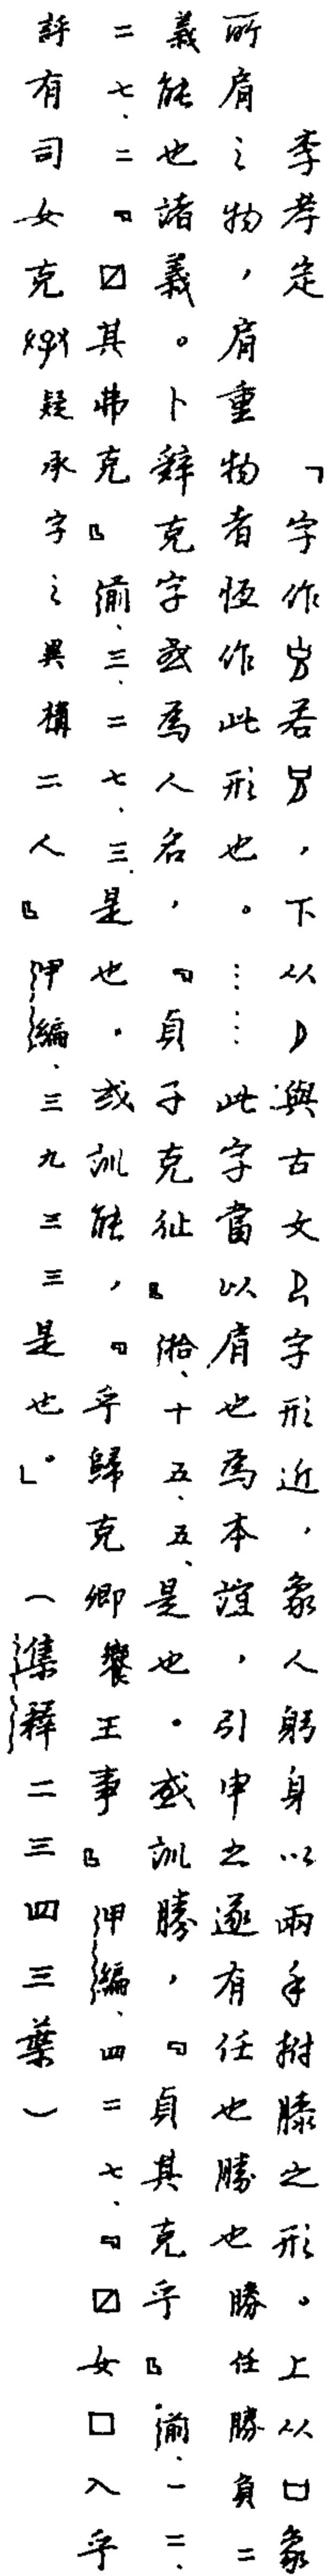 李孝定　「字作若，下从與古文字形近，象人躬身以兩手拊膝之形。上从口象
所肩之物，肩重物者恆作此形也。……此字當以肩也為本誼，引申之遂有任也勝也勝任勝負二
義能也諸義。卜辭克字或為人名，『貞子克𢓊』瀚、十五、五、是也。或訓勝，『貞其克乎』湔、一二、
二七、二『☑其弗克』湔、三、二七、三、是也。或訓能，『乎歸克卿饗王事』㘝編、四二七、『☑女□入乎
訝有司女克疑承字之異構二人』㘝編、三九三三是也」。（集釋二三四三葉）